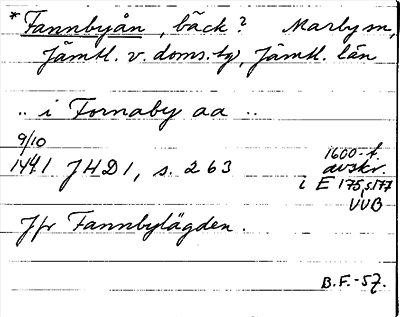 *Fannbyån, bäck? Marby sn,
Jämtl. v. doms.tg, Jämtl. län
.. i Fornaby aa ..
9/10
1441 JHD1, s. 263
1600-t.
avskr.
i E 175, s. 177
UUB
Jfr Fannbylägden.
B.F.-57.